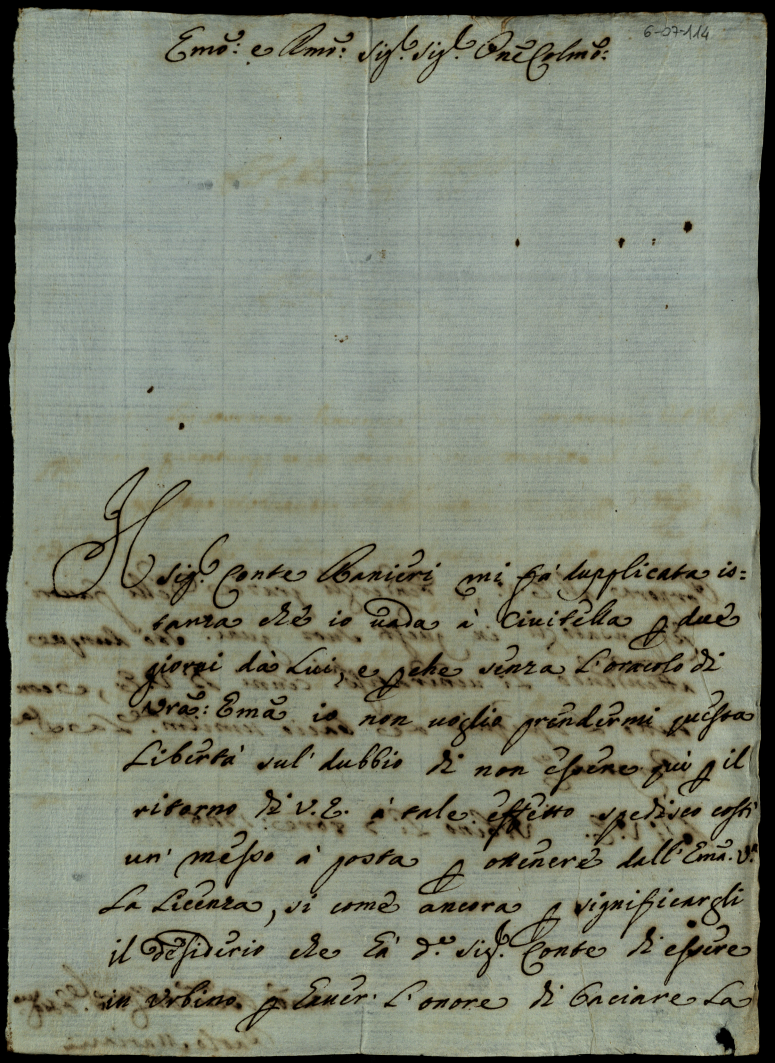 6-07-114
Emõ: e Rmõ: sig.r sig.r Pne Colmõ:
Il sig.r Conte Ranieri mi fà dupplicata is=
tanza che io uada à Civitella p due
giorni dà Lui, e pche senza L'oracolo di
Vrã: Emã io non uoglio prendermi questa
Libertà sul' dubbio di non essere quì p il
ritorno di V.E. à tale effetto spedisco costì
un' messo à posta p ottenere dall'Emã. V.a
La Licenza, si come ancora p significargli
il desiderio che hà d.o sig.r Conte di essere
in Urbino p hauer' L'onore di baciare La